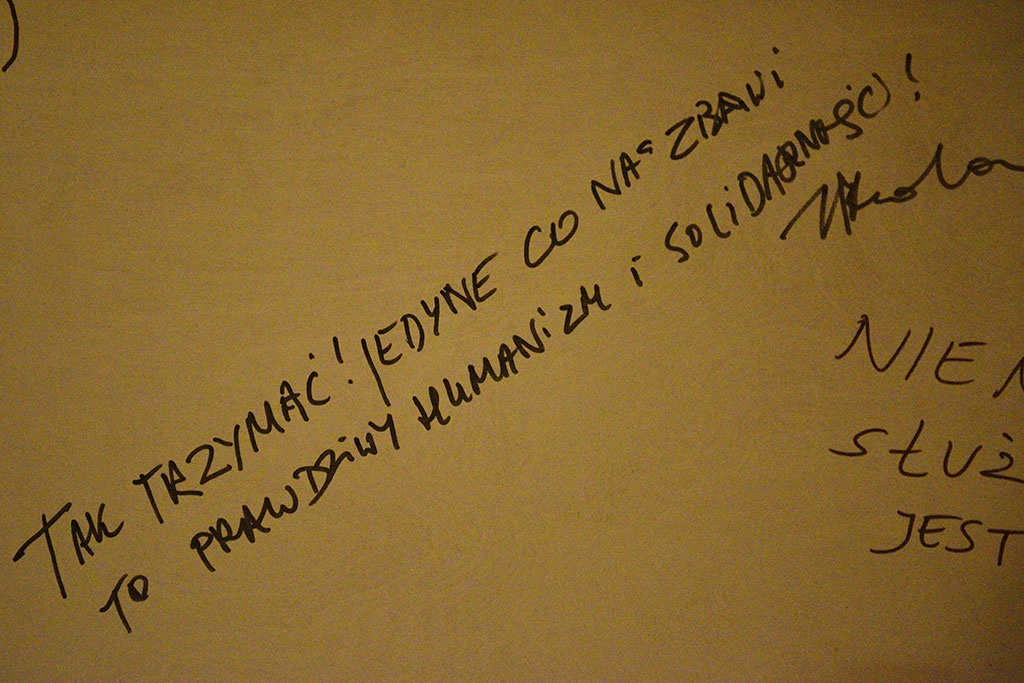 TAK TRZYMAĆ! JEDYNE CO NAS ZBAWI
TO PRAWDZIWY HUMANIZM i SOLiDARNOŚĆ!
NIE
SŁUŻ
JEST